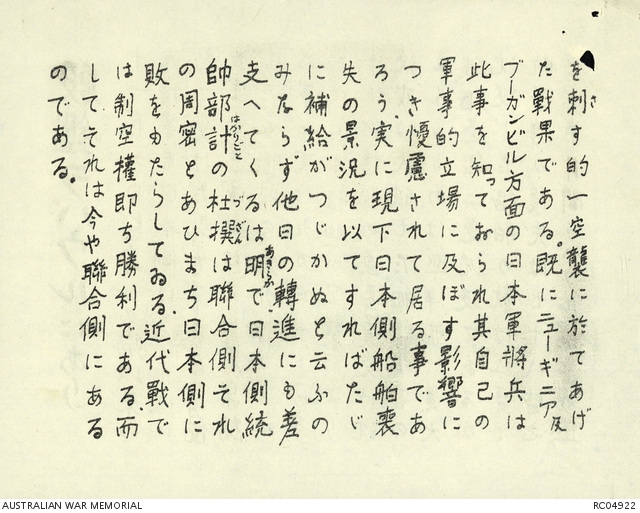 を刺す的一空襲に於てあげ
た戰果である。既にニューギニア及
ブーガンビル方面の日本軍將兵は
此事を知っておられ其自己の
軍事的立場に及ぼす影響に
つき憂慮されて居る事であ
ろう、実に現下日本側船舶喪
失の景況を以てすればたゞ
に補給がつじかぬと云ふの
みならず他日の轉進にも差
支へてくるは明で、日本側統
帥部計の杜撰は聯合側それ
の周密とあひまち日本側に
敗をもたらしてゐる、近代戰で
は制空權即ち勝利である、而
してそれは今や聯合側にある
のである。
さ
あきらか
はかりごと
づざん
AUSTRALIAN WAR MEMORIAL
RC04922